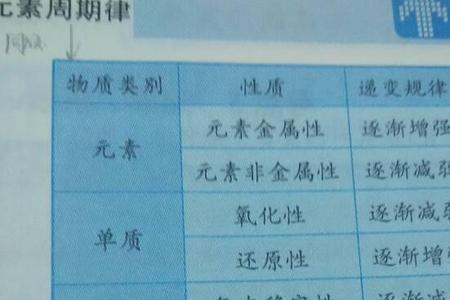 元素周期律
物质类别 性质 递变规律
元素 元素金属性 逐渐增强
元素非金属性 逐渐减弱
单质 氧化性 逐渐减弱
还原性 逐渐增强